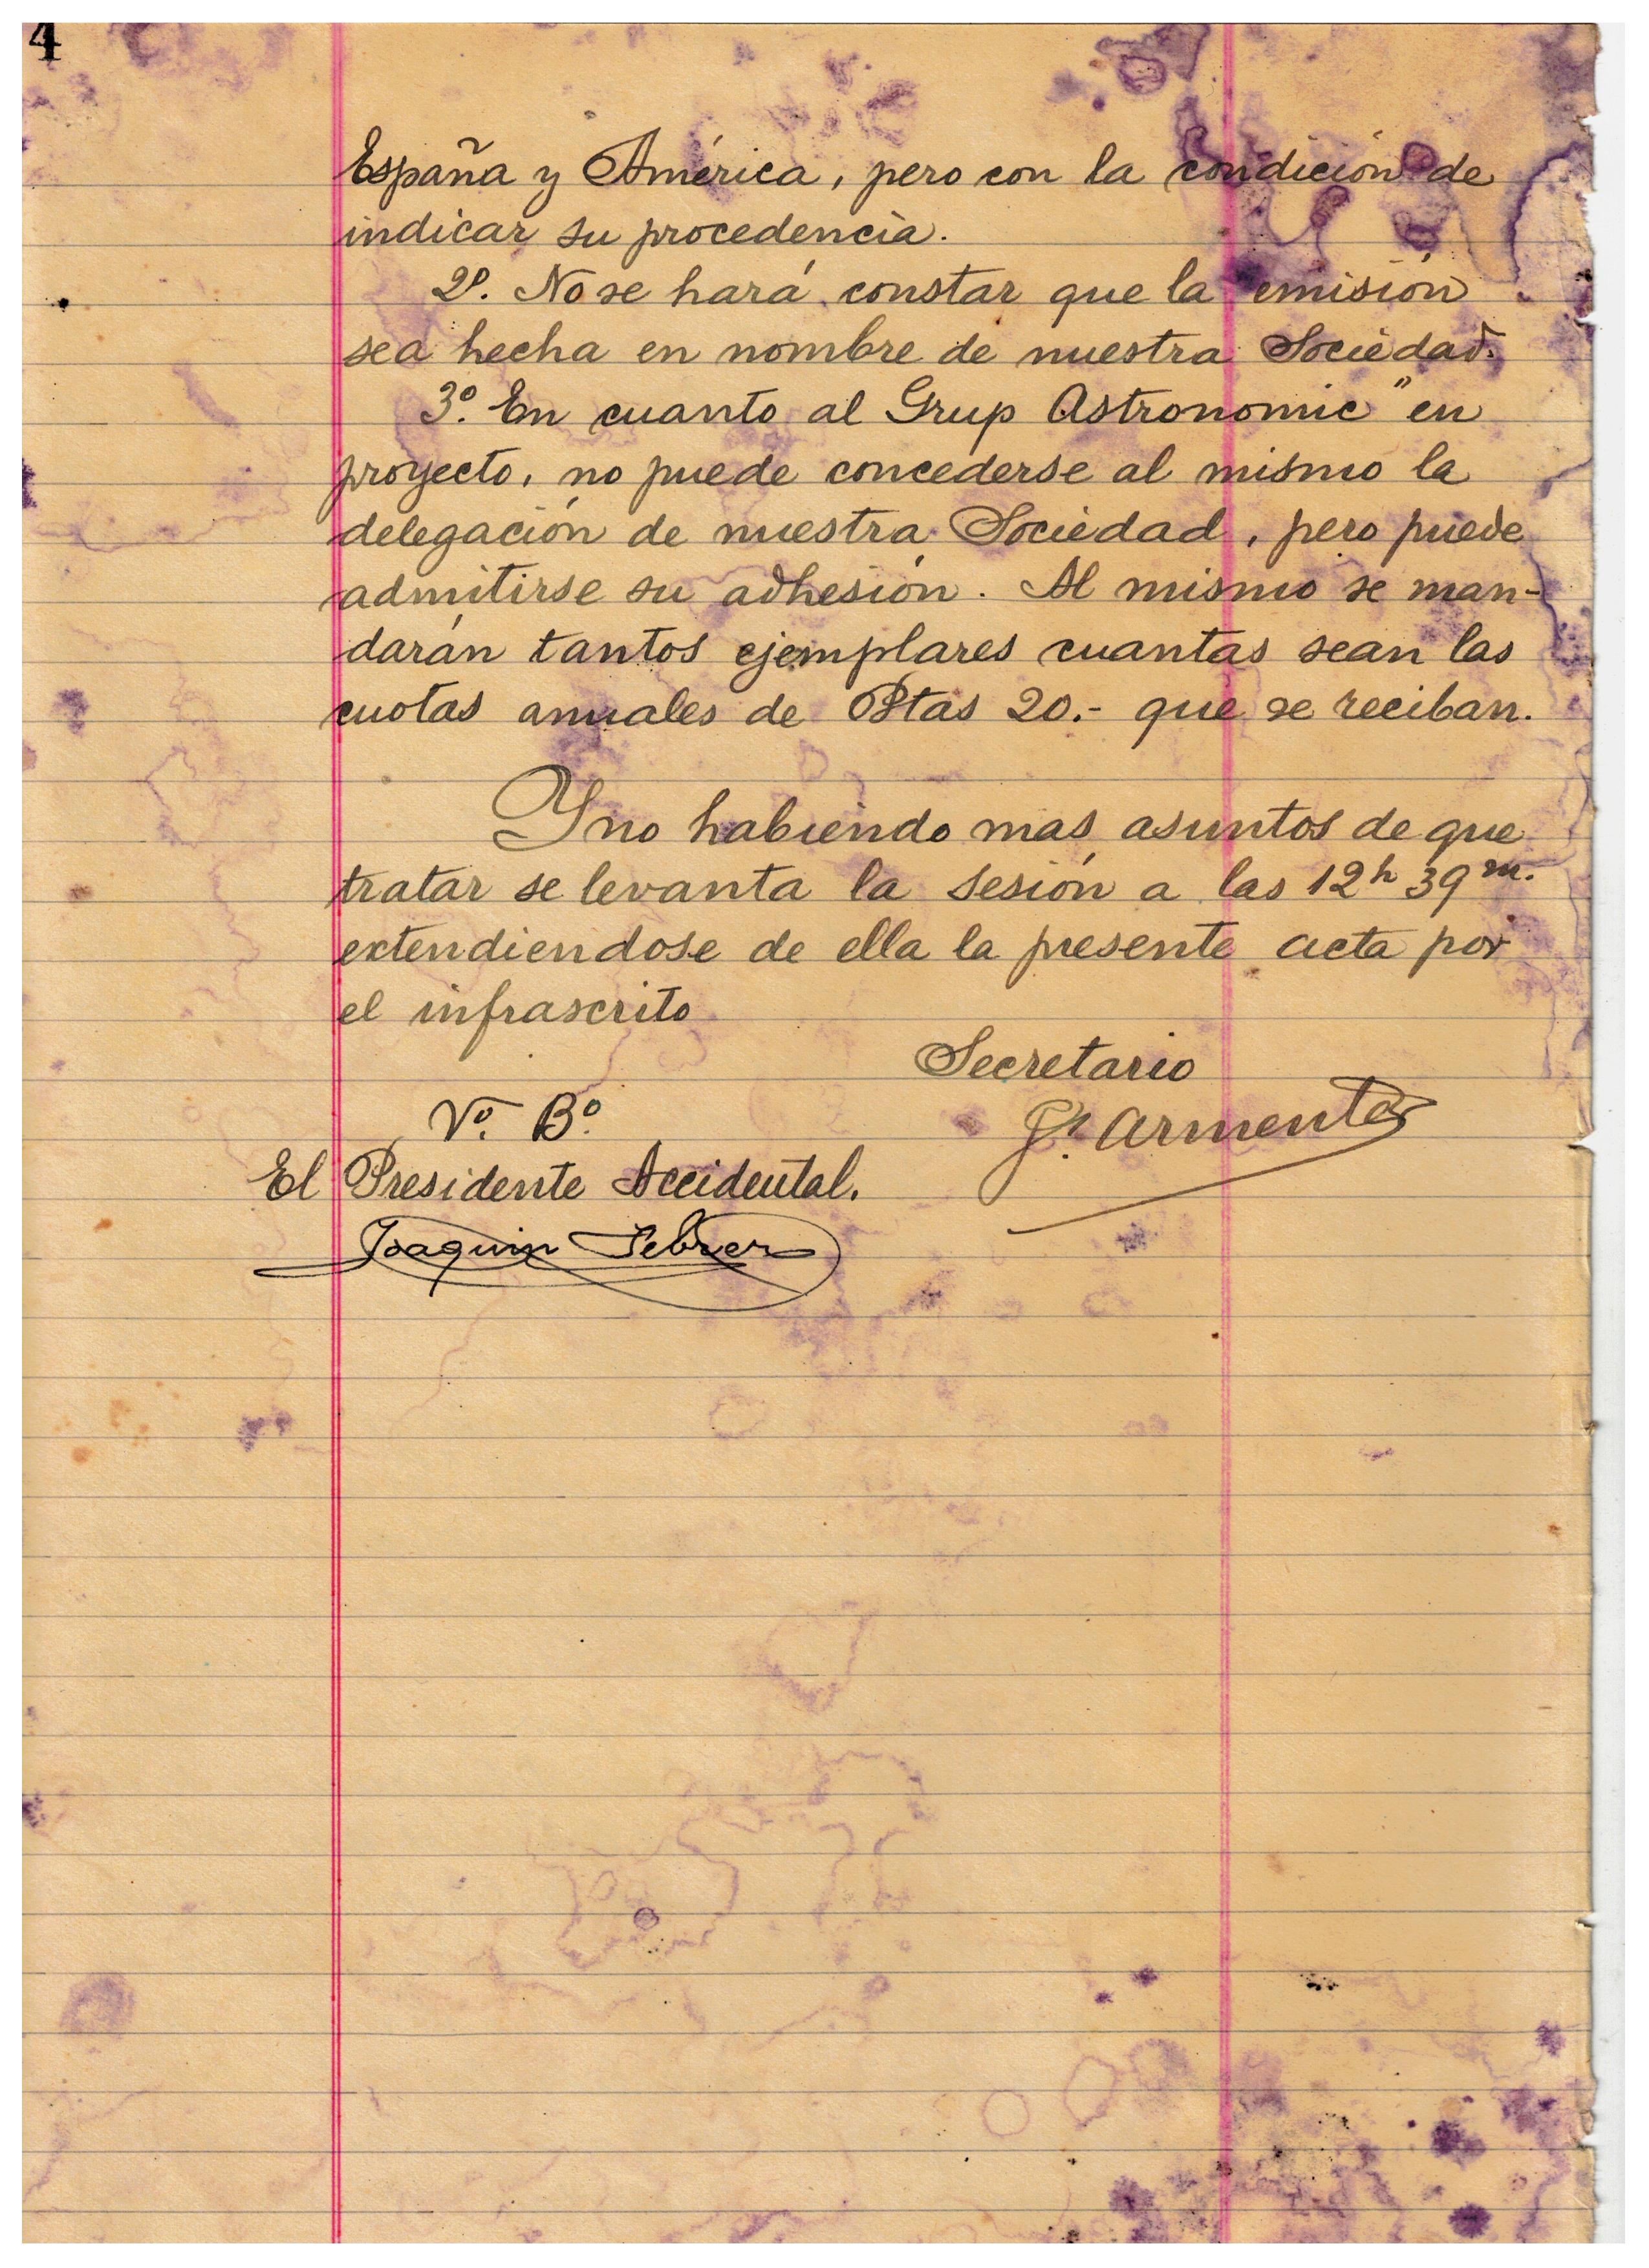 4
España y América, pero con la condición de
indicar su procedencia.
2º. No se hará constar que la emisión
sea hecha en nombre de nuestra Sociedad.
3º. En cuanto al Grup Astronomic" en
proyecto, no puede concederse al mismo la
delegación de nuestra Sociedad, pero puede
admitirse su adhesión. Al mismo se man-
darán tantos ejemplares cuantas sean las
cuotas anuales de Ptas 20.- que se reciban.
Y no habiendo mas asuntos de que
tratar se levanta la sesión a las 12h 39m.
extendiendose de ella la presente acta por
el infrascrito
Secretario
Vº. Bº.
Armenter
El Presidente Accidental.
Joaquin Febrer